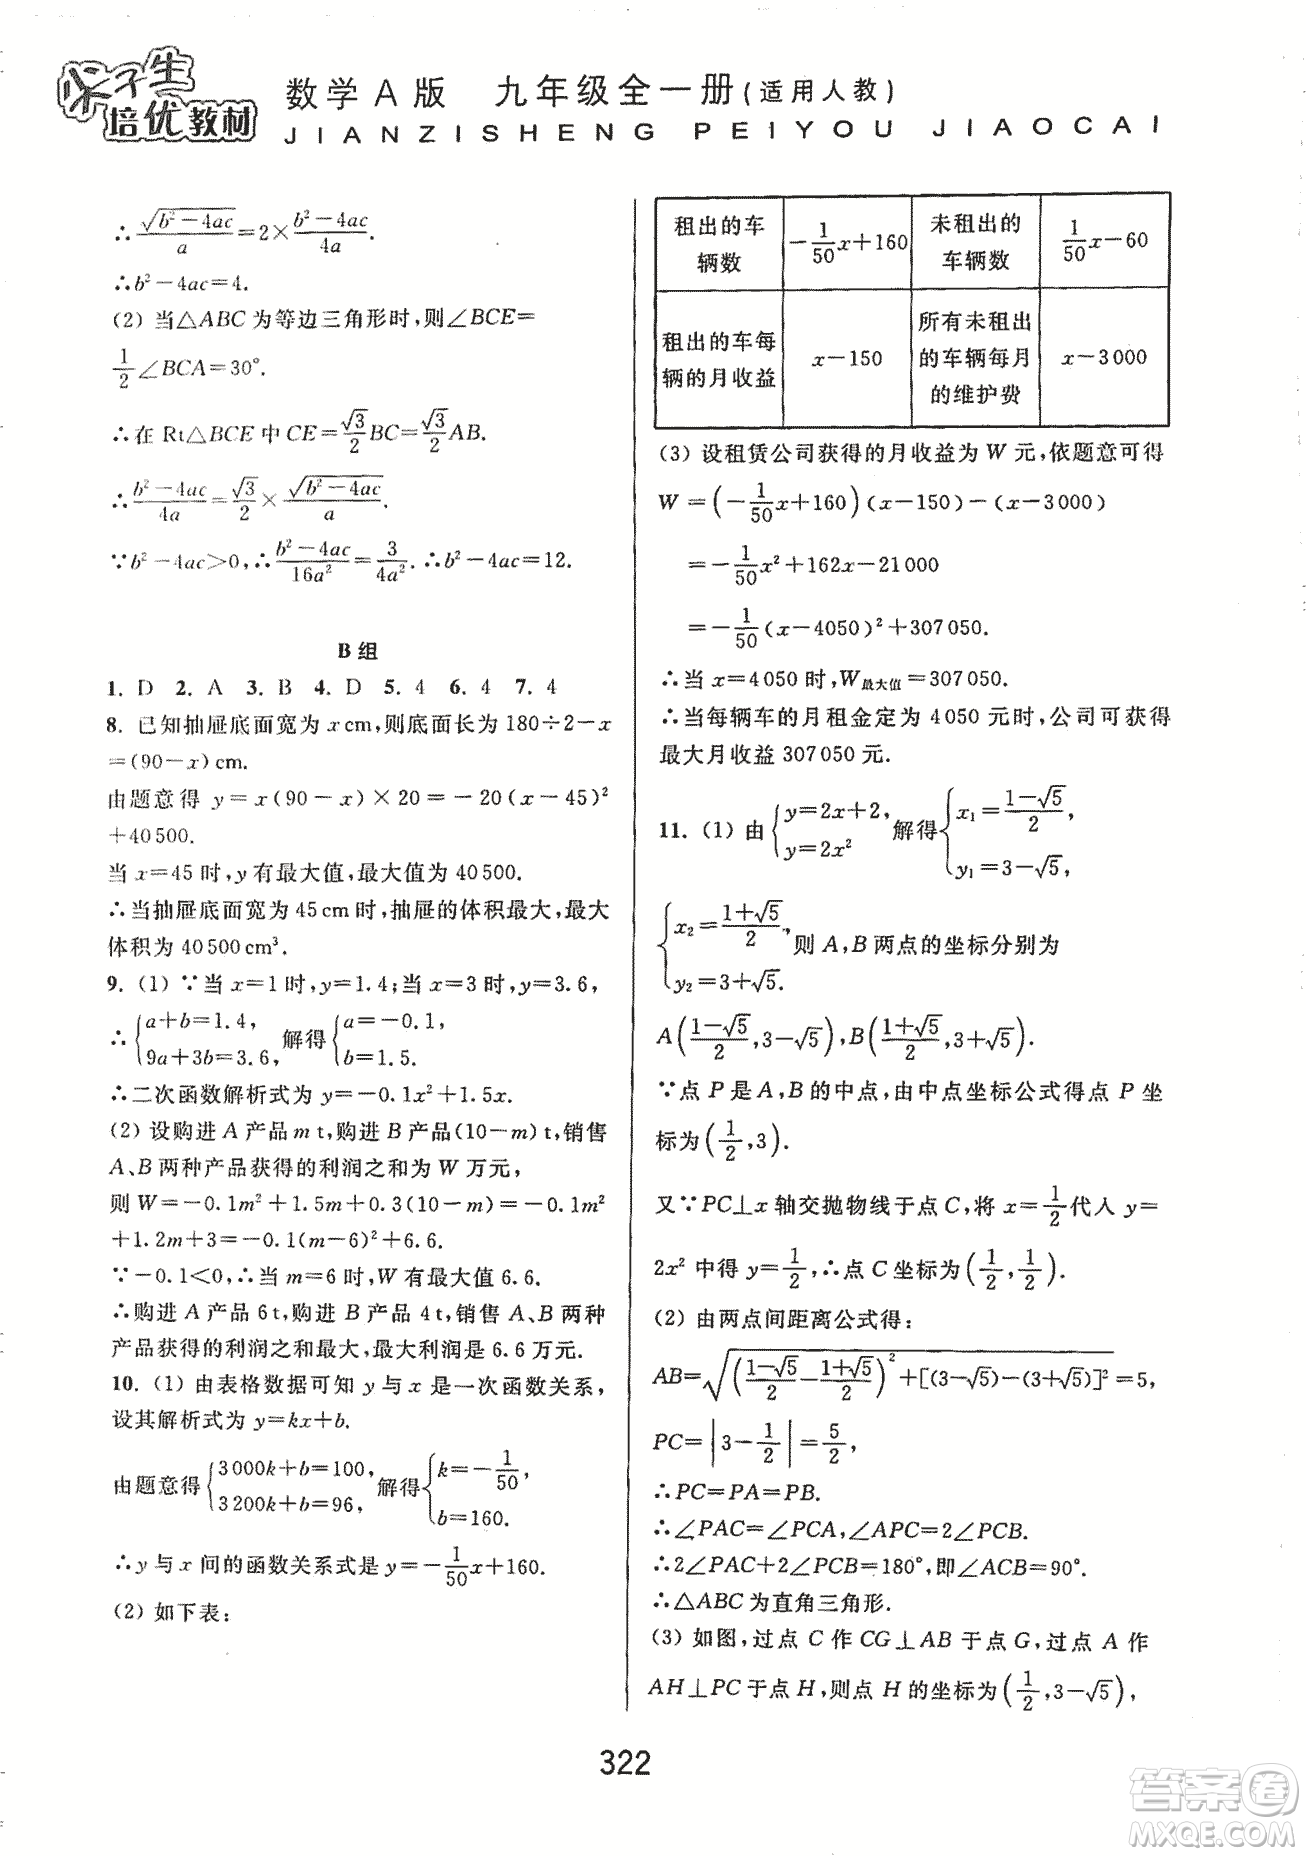 尖子生
培优教材
数学A版 九年级全一册(适用人教)
JIANZISHENG PEIYOU JIAOCAI
∴√(b²-4ac)/a=2×(b²-4ac)/4a.
∴b²-4ac=4.
(2) 当△ABC 为等边三角形时,则∠BCE=
1/2∠BCA=30°.
∴在 Rt△BCE 中 CE=√3/2BC=√3/2AB.
∴(b²-4ac)/4a=√3/2×√(b²-4ac)/a.
∵b²-4ac>0,∴(b²-4ac)/16a²=3/4a².∴b²-4ac=12.
B 组
1. D 2. A 3. B 4. D 5. 4 6. 4 7. 4
8. 已知抽屉底面宽为 x cm,则底面长为 180÷2-x
=(90-x) cm.
由题意得 y=x(90-x)×20=-20(x-45)²
+40 500.
当 x=45 时,y 有最大值,最大值为 40 500.
∴当抽屉底面宽为 45 cm 时,抽屉的体积最大,最大
体积为 40 500 cm³.
9. (1) ∵当 x=1 时,y=1.4;当 x=3 时,y=3.6,
∴{a+b=1.4, 9a+3b=3.6, 解得{a=-0.1, b=1.5.
∴二次函数解析式为 y=-0.1x²+1.5x.
(2) 设购进 A 产品 m t,购进 B 产品(10-m) t,销售
A、B 两种产品获得的利润之和为 W 万元,
则 W=-0.1m²+1.5m+0.3(10-m)=-0.1m²
+1.2m+3=-0.1(m-6)²+6.6.
∵-0.1<0,∴当 m=6 时,W 有最大值 6.6.
∴购进 A 产品 6 t,购进 B 产品 4 t,销售 A、B 两种
产品获得的利润之和最大,最大利润是 6.6 万元.
10. (1) 由表格数据可知 y 与 x 是一次函数关系,
设其解析式为 y=kx+b.
由题意得{3 000k+b=100, 3 200k+b=96, 解得{k=-1/50, b=160.
∴y 与 x 间的函数关系式是 y=-1/50x+160.
(2) 如下表:
租出的车辆数 -1/50x+160 未租出的车辆数 1/50x-60
租出的车每辆的月收益 x-150 所有未租出的车辆每月的维护费 x-3 000
(3) 设租赁公司获得的月收益为 W 元,依题意可得
W=(-1/50x+160)(x-150)-(x-3 000)
=-1/50x²+162x-21 000
=-1/50(x-4050)²+307 050.
∴当 x=4 050 时,W最大值=307 050.
∴当每辆车的月租金定为 4 050 元时,公司可获得
最大月收益 307 050 元.
11. (1) 由{y=2x+2, y=2x² 解得{x₁=(1-√5)/2, y₁=3-√5,
{x₂=(1+√5)/2, y₂=3+√5. 则 A,B 两点的坐标分别为
A((1-√5)/2,3-√5),B((1+√5)/2,3+√5).
∵点 P 是 A,B 的中点,由中点坐标公式得点 P 坐
标为(1/2,3).
又∵PC⊥x 轴交抛物线于点 C,将 x=1/2代人 y=
2x² 中得 y=1/2,∴点 C 坐标为(1/2,1/2).
(2) 由两点间距离公式得:
AB=√(((1-√5)/2-(1+√5)/2)²+[(3-√5)-(3+√5)]²)=5,
PC=|3-1/2|=5/2,
∴PC=PA=PB.
∴∠PAC=∠PCA,∠APC=2∠PCB.
∴2∠PAC+2∠PCB=180°,即∠ACB=90°.
∴△ABC 为直角三角形.
(3) 如图,过点 C 作 CG⊥AB 于点 G,过点 A 作
AH⊥PC于点 H,则点 H 的坐标为(1/2,3-√5),
322
答案圈
MXQE.COM